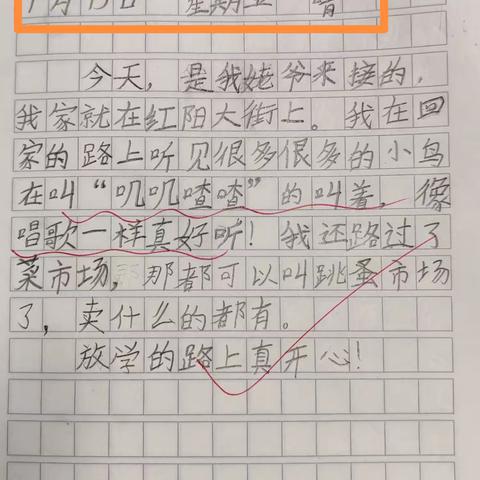 月15日 星期五 晴
今天，是我姥爷来接的，
我家就在红阳大街上。我在回
家的路上听见很多很多的小鸟
在叫“叽叽喳喳”的叫着，像
唱歌一样真好听！我还路过了
菜市场，那都可以叫跳蚤市场
了，卖什么的都有。
放学的路上真开心！